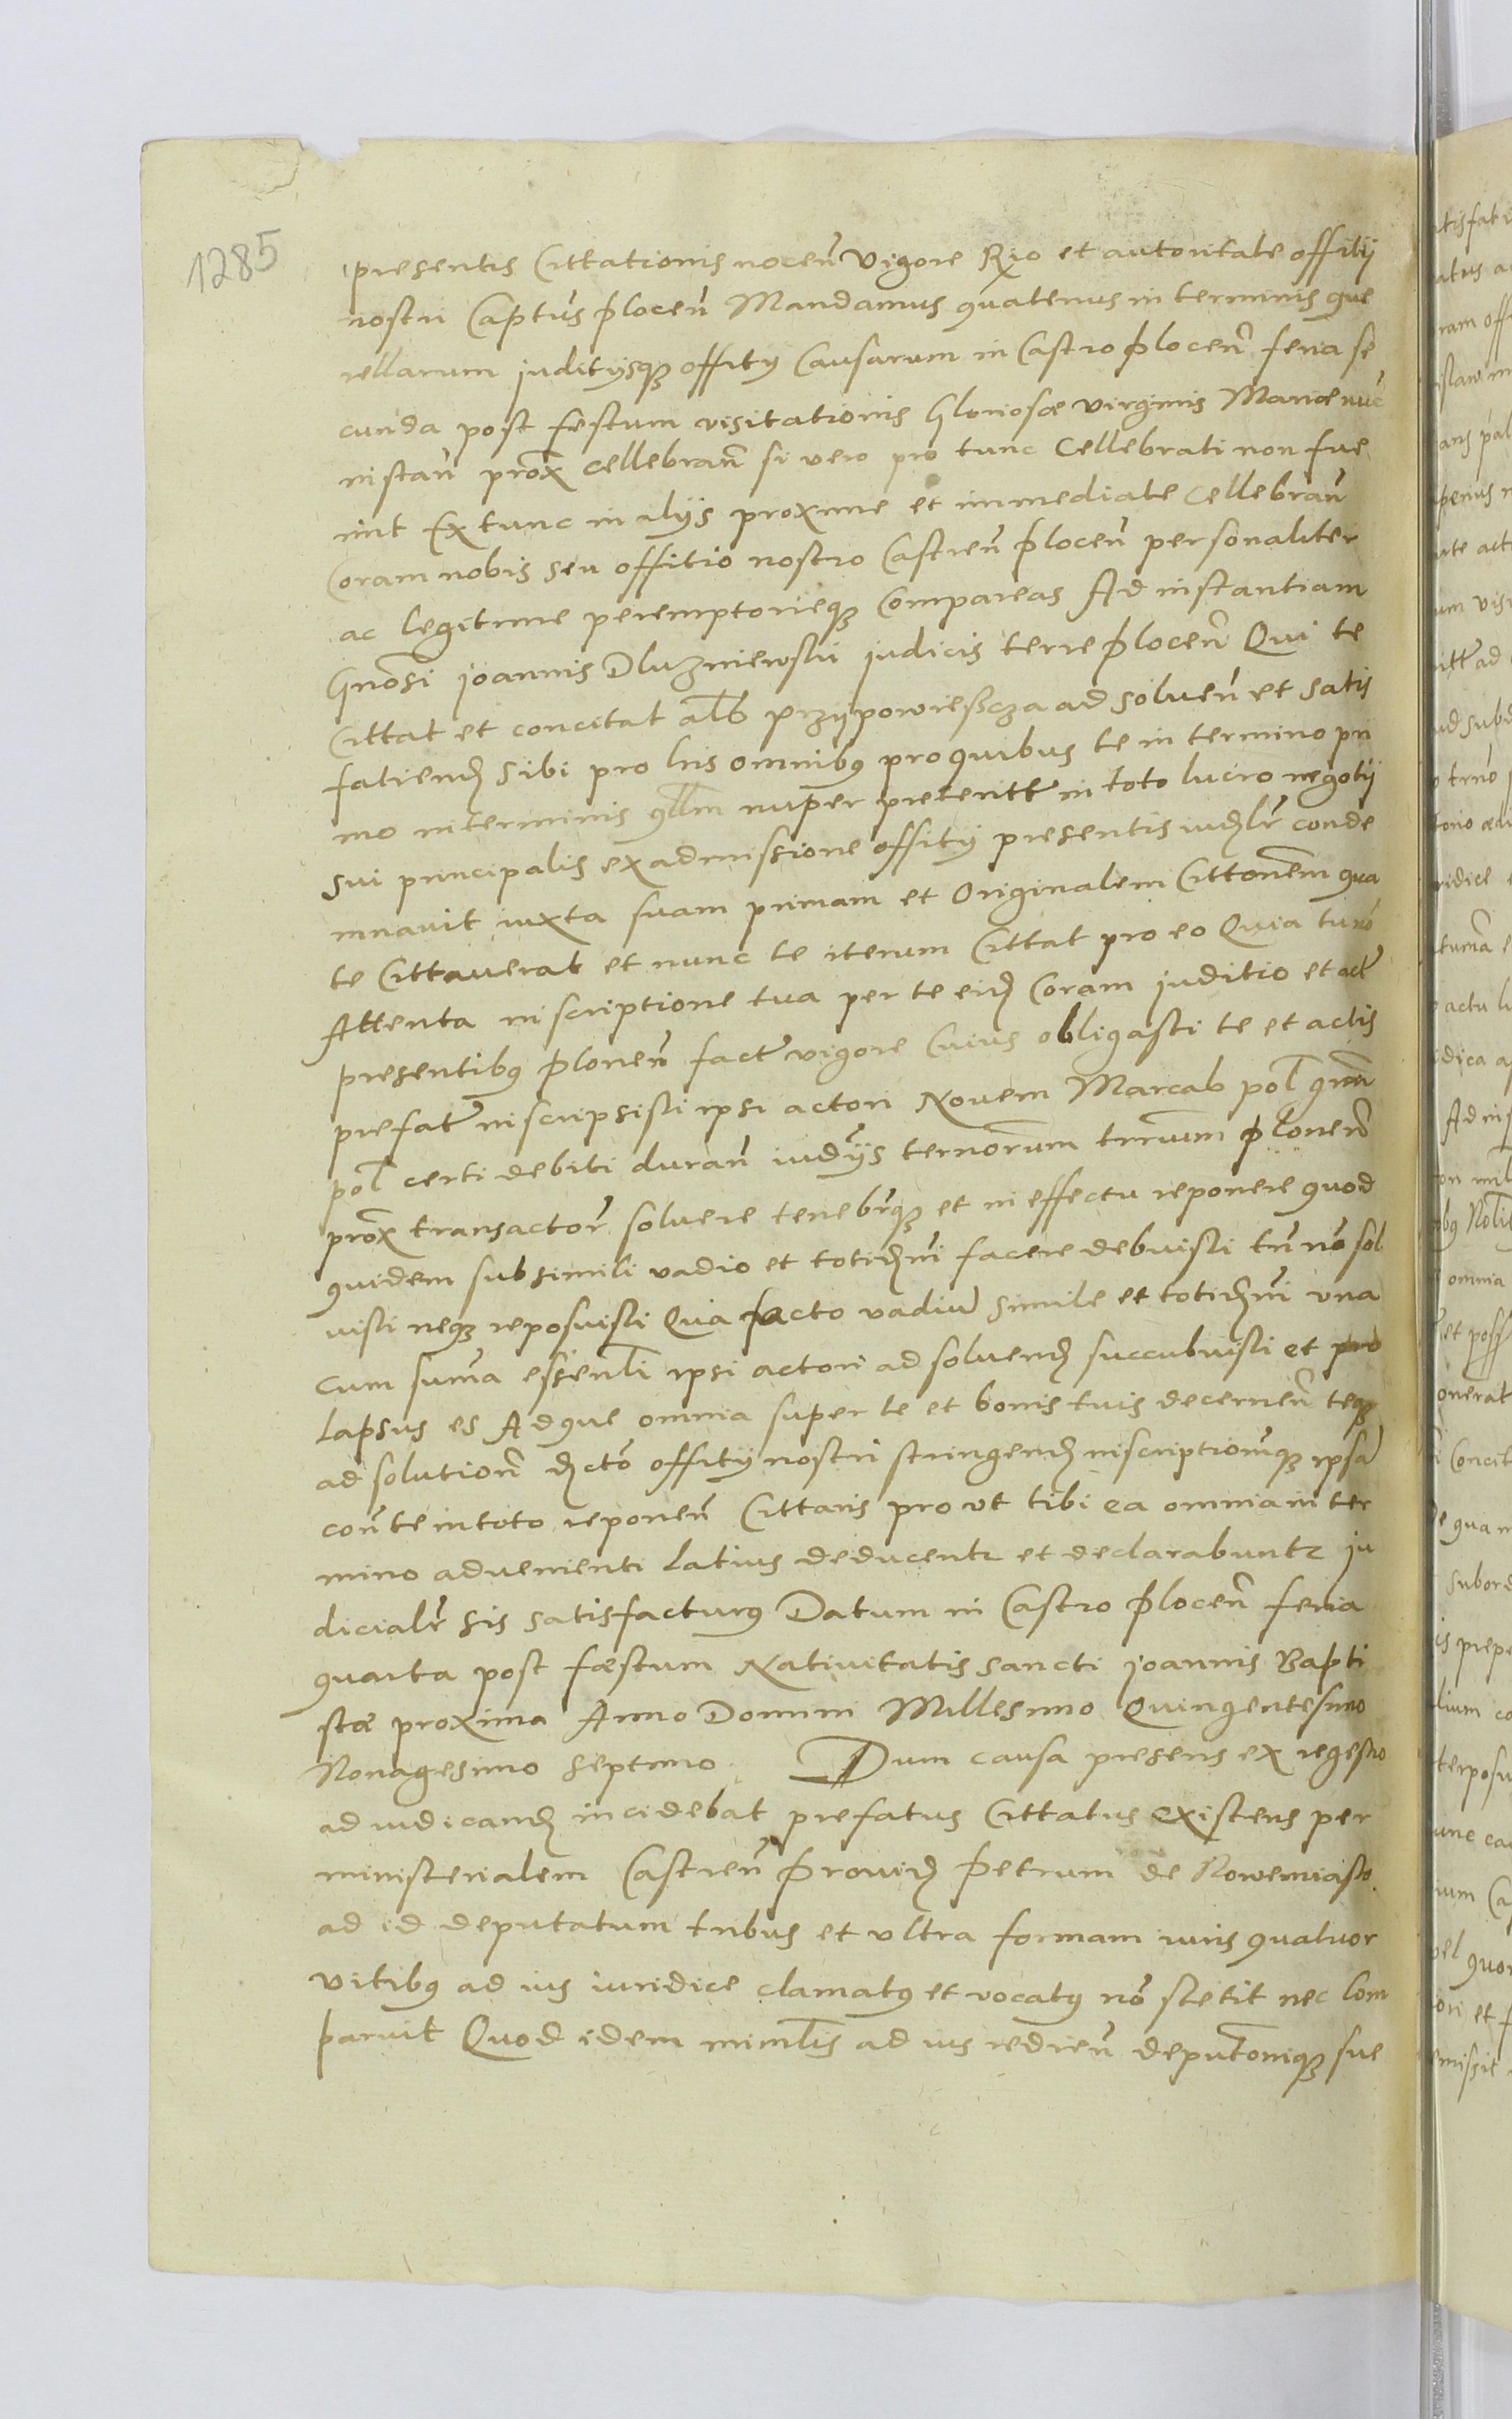 1285
presentis Cittationis nocen̄ vigore Rżo et autoritate offitij
nostri Captūs plocen̄ Mandamus quatenus in terminis que
rellarum juditijsq₃ offitij Causarum in Castro plocen̄ feria se
cunda post festum visitationis Gloriosæ virginis Mariæ nūc
instan̄ prox̄ cellebran̄ si vero pro tunc Cellebrati non fue
rint Ex tunc in alijs proxime et immediate cellebran̄
Coram nobis seu offitio nostro Castren̄ plocen̄ personaliter
ac legitime peremptorieq₃ Compareas Ad instantiam
Gnōsi joannis Dluzniewski judicis terre plocen̄ Qui te
Cittat et concitat al̄s przypowieszcza ad soluen̄ et satis
fatiend̄ sibi pro his omnibꝰ pro quibus te in termino pri
mo in terminis qll̄m nuper preteritt̄ in toto lucro negotij
sui principalis ex admissione offitij presentis iud̄lr̄ conde
mnauit iuxta suam primam et Originalem Cittōnem qua
te Cittauerat et nunc te iterum Cittat pro eo Quia tu nō
Attenta inscriptione tua per te eid̄ Coram juditio et act̄
presentibꝰ plonen̄ fact̄ vigore Cuius obligasti te et actis
prefat̄ inscripsisti ipsi actori Nouem Marcas pol̄ qnm̄
pol̄ certi debiti duran̄ iudȳs ternorum trr̄um plonen̄
prox̄ transactor̄ soluere tenebrq₃ et in effectu reponere quod
quidem sub simili vadio et totid̄m̄ facere debuisti tn̄ nō sol
uisti neq₃ reposuisti Qua facto vadiū simile et totid̄m̄ vna
cum sum̄a essentl̄i ipsi actori ad soluend̄ succubuisti et pro
lapsus es Ad que omnia super te et bonis tuis decernen̄ teq₃
ad solution̄ d̄ctō offitij nostri stringend̄ inscriptionq₃ ipsā
con̄ te in toto reponen̄ Cittaris pro vt tibi ea omnia in ter
mino aduenienti latius deducentr et declarabuntr ju
dicialr̄ sis satisfacturꝰ Datum in Castro plocen̄ feria
quarta post fæstum Natiuitatis sancti joannis Bapti
stæ proxima Anno Domini Millesimo Quingentesimo
Nonagesimo septimo Dum causa presens ex regestro
ad iudicand̄ incidebat prefatus Cittatus existens per
ministerialem Castren̄ prouid̄ petrum de Nowemiasto
ad id deputatum tribus et vltra formam iuris quatuor
vitibꝰ ad ius iuridice clamatꝰ et vocatꝰ nō stetit nec Com
paruit Quod idem minlīs ad ius redien̄ deputōniq₃ sue